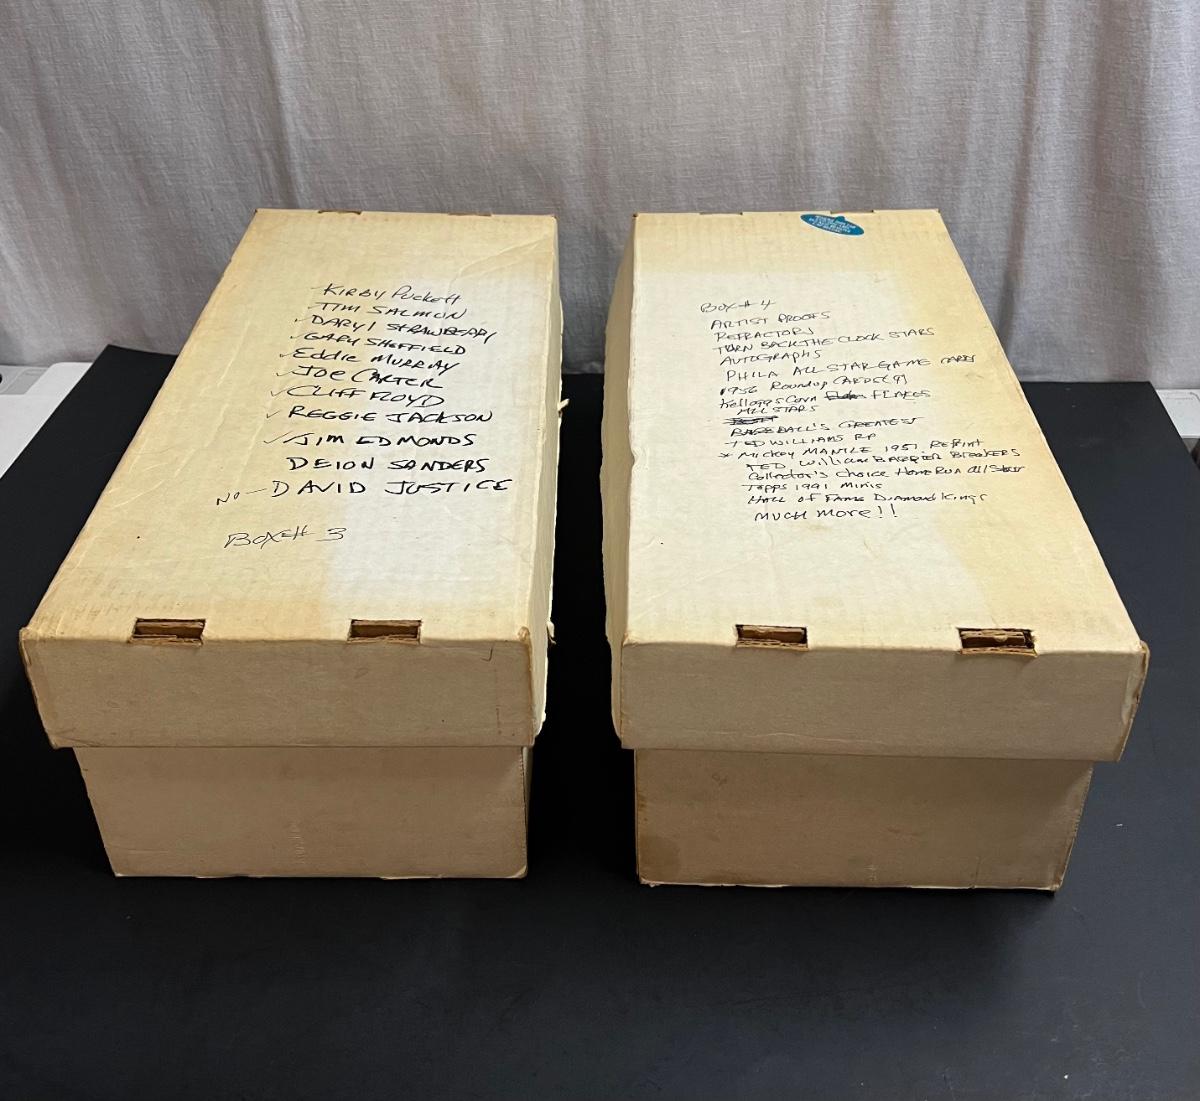 KIRBY Puckett
TIM SALMON
DARYl STRAWBERRY
GARY SHEFFIELD
Eddie MURRAY
JOE CARTER
CLIFF FLOYD
REGGIE JACKSON
JIM EDMONDS
DEION SANDERS
NO - DAVID JUSTICE
BOX# 3
BOX# 4
ARTIST PROOFS
REFRACTORS
TURN BACK THE CLOCK STARS
AUTOGRAPHS
PHILA ALL STAR GAME CARDS
1956 Roundup CARDS (9)
Kelloggs Corn FLAKES
ALL STARS
BASEBALL'S GREATEST
TED WILLIAMS RP
* MICKEY MANTLE 1951 REPRINT
TED William BARRIER BREAKERS
Collector's Choice Home Run All Star
Topps 1991 Minis
HALL OF FAME DIAMOND Kings
MUCH More!!